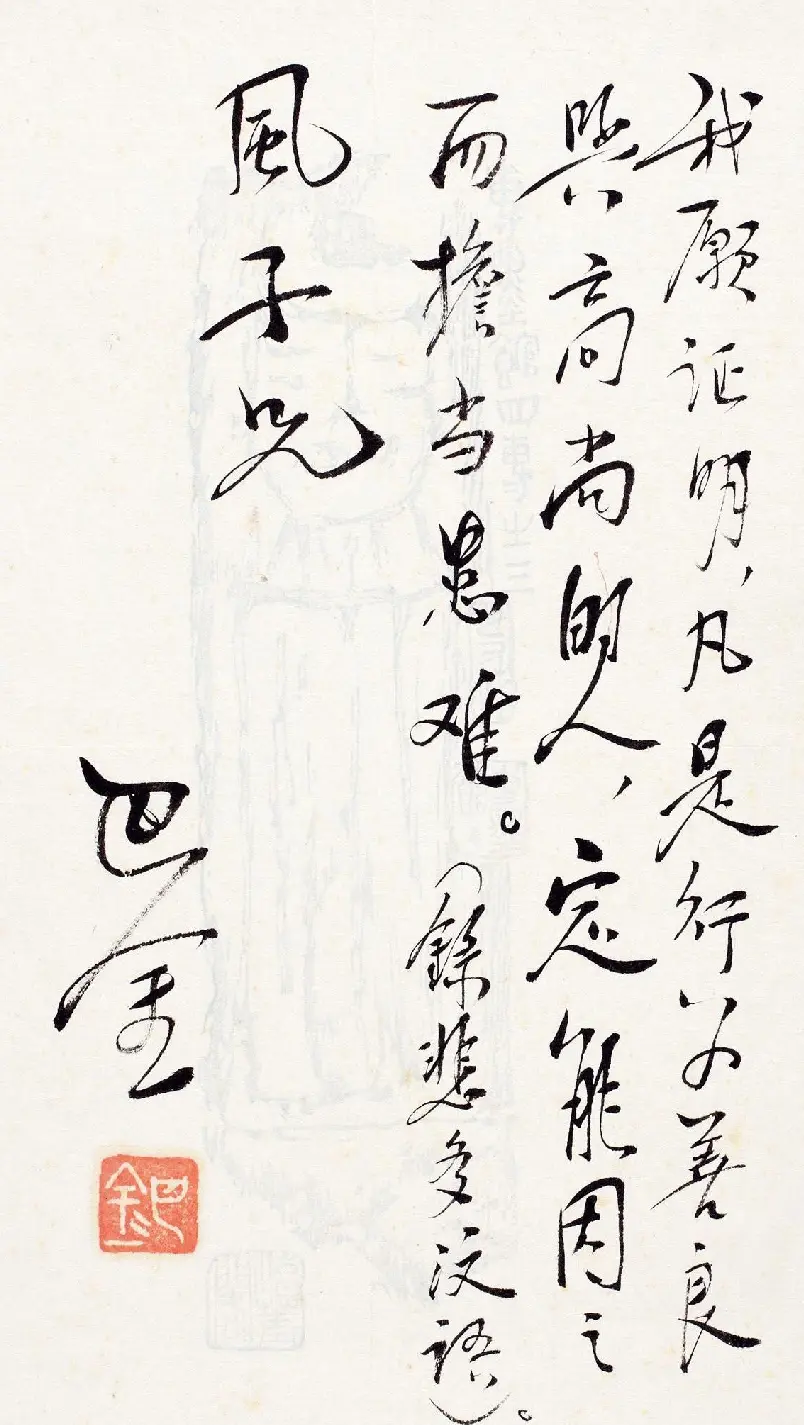 我愿证明，凡是行为善良
與高尚的人，定能因之
而擔当患难。（錄悲多汶語）。
風子兄
巴金
巴金